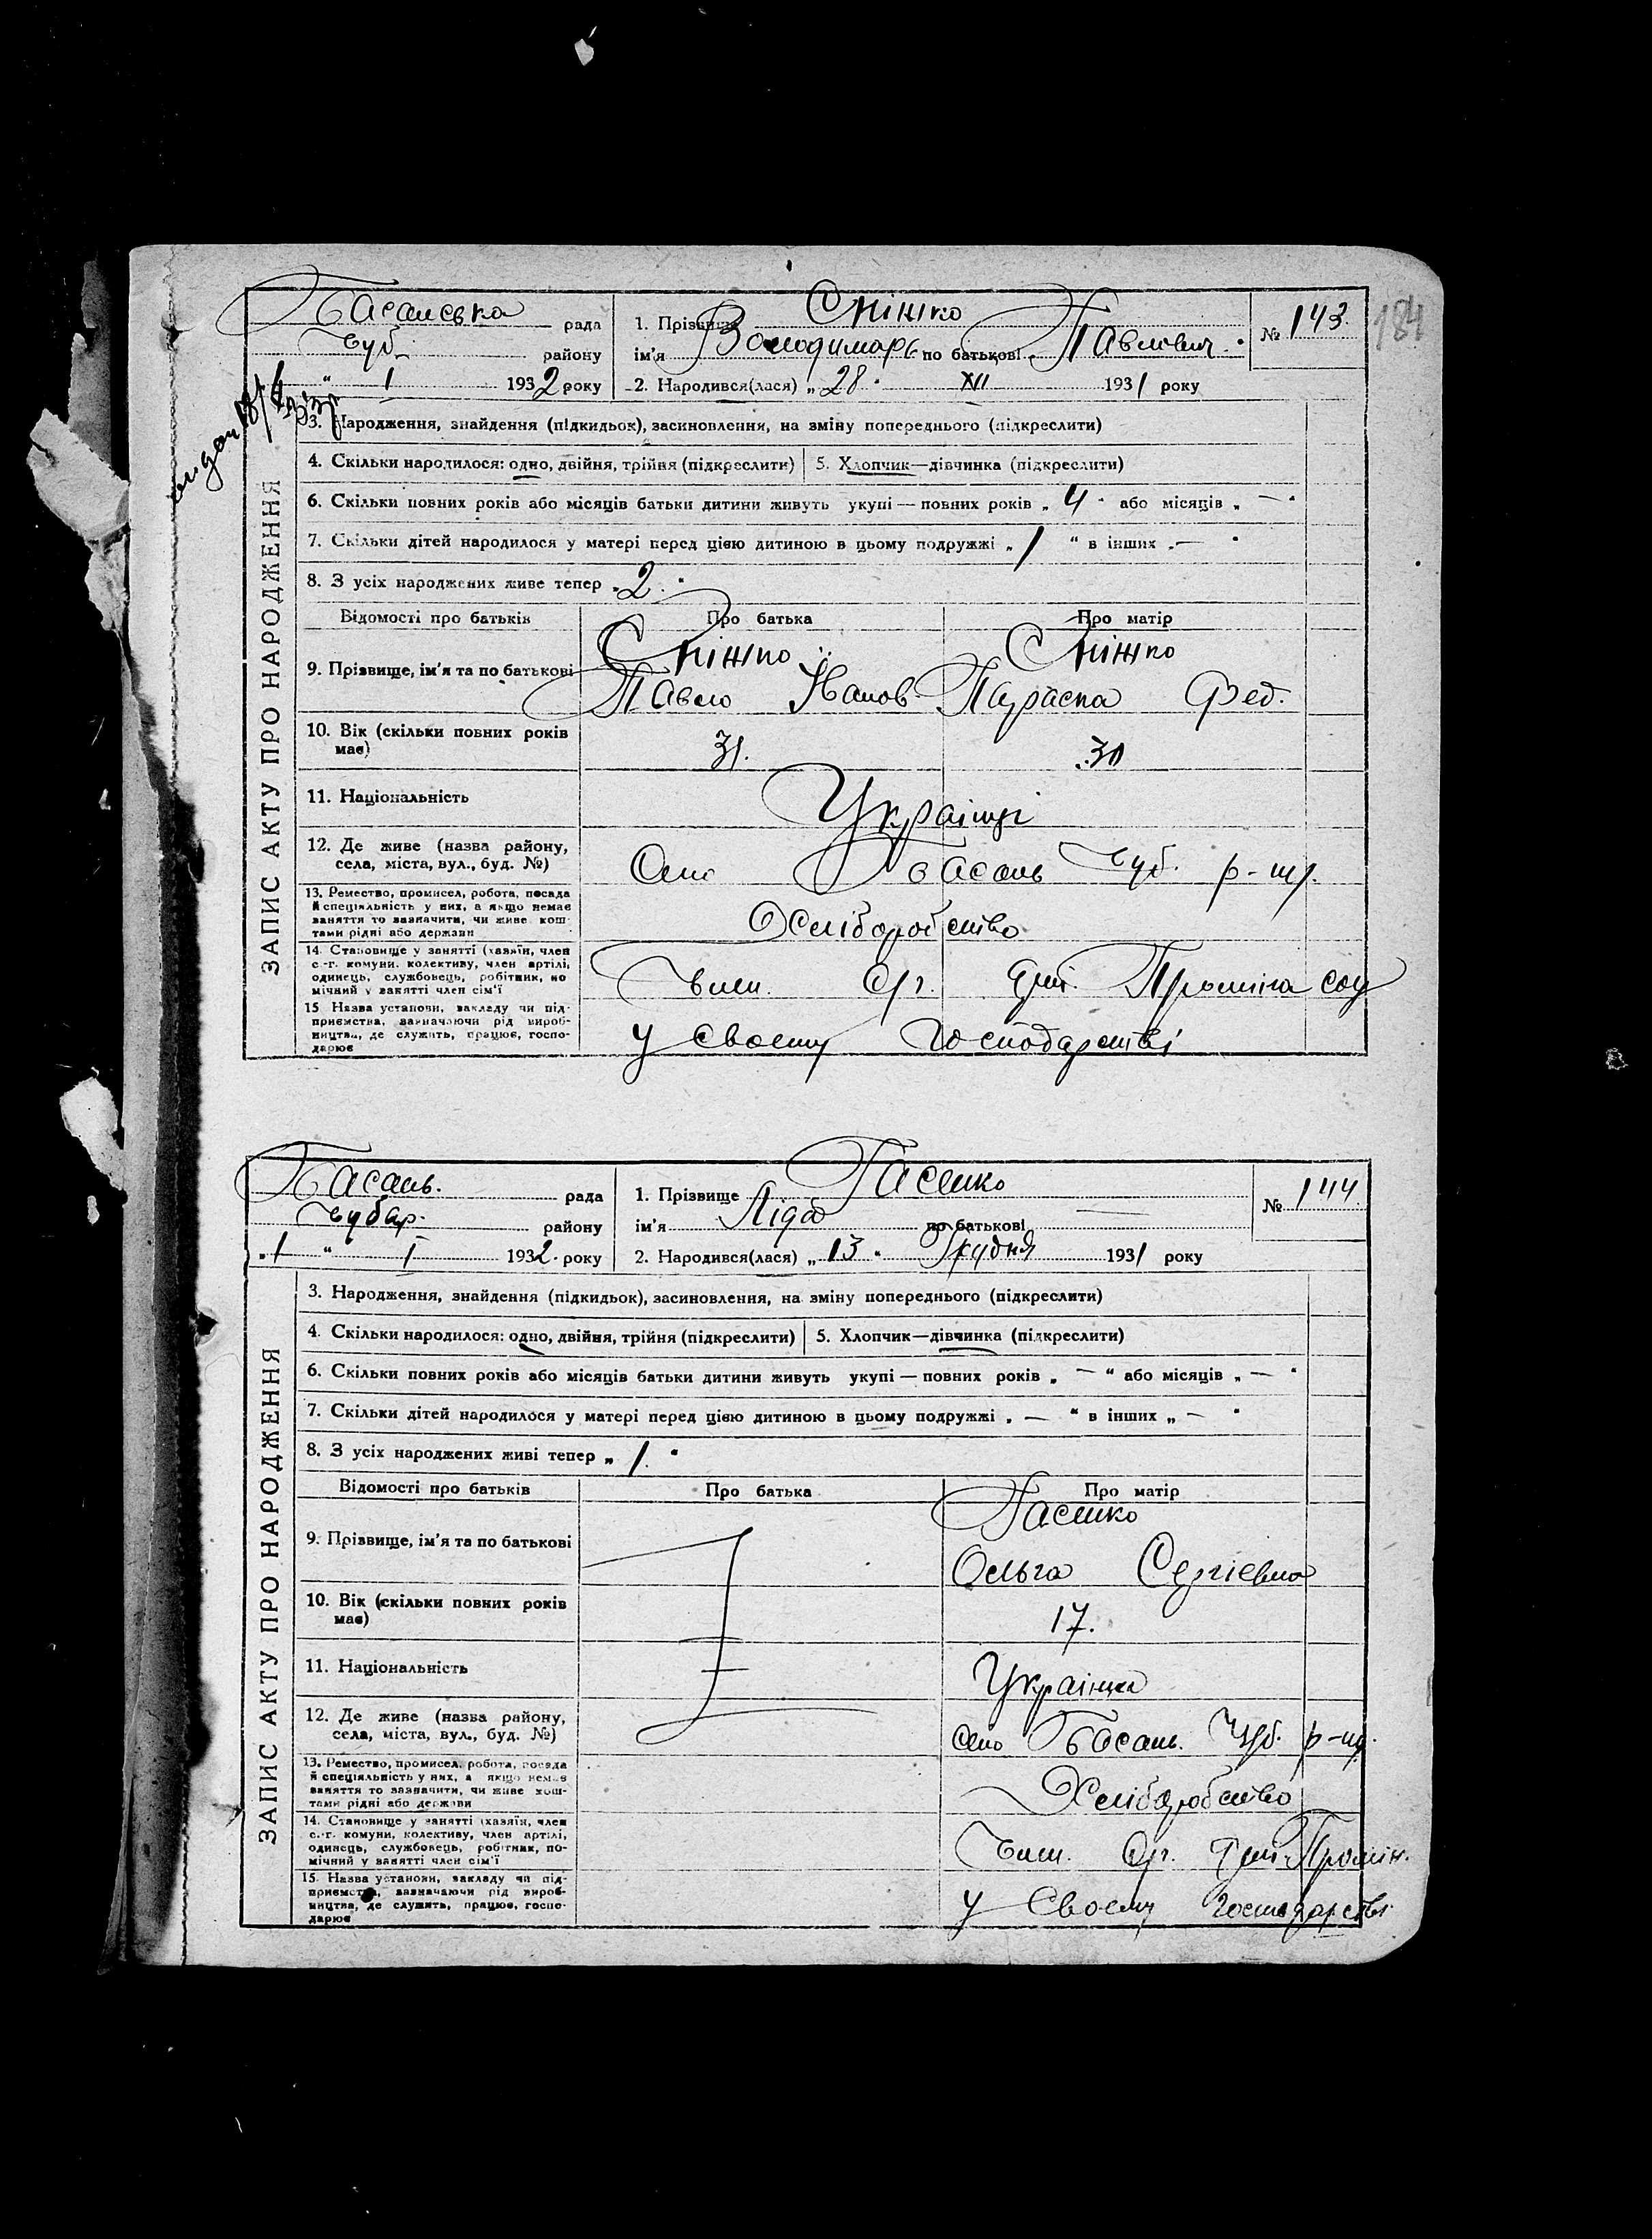 184
Басанська рада
Чуб. району
" I 1932 року
1. Прізвище Сніжко
ім'я Володимарь по батькові Павлович.
2. Народився(лася) „ 28 " XII 1931 року
№ 143.
ЗАПИС АКТУ ПРО НАРОДЖЕННЯ
3. Народження, знайдення (підкидьок), засиновлення, на зміну попереднього (підкреслити)
4. Скільки народилося: одно, двійня, трійня (підкреслити) 5. Хлопчик—дівчинка (підкреслити)
6. Скільки повних років або місяців батьки дитини живуть укупі — повних років „ 4 " або місяців „ — "
7. Скільки дітей народилося у матері перед цією дитиною в цьому подружжі „ 1 " в інших „ — "
8. З усіх народжених живе тепер „ 2 "
Відомості про батьків Про батька Про матір
9. Прізвище, ім'я та по батькові
Сніжко Сніжко
Павло Іванов Параска Фед.
10. Вік (скільки повних років має) 31. 30
11. Національність Українці
12. Де живе (назва району,
села, міста, вул., буд. №)
Село Басань Чуб. р-ну.
13. Ремество, промисел, робота, посада
й спеціяльність у них, а якщо немає
заняття то зазначити, чи живе кош-
тами рідні або держави
Хліборобство
14. Становище у занятті (хазяїн, член
с.-г. комуни, колективу, член артілі,
одинець, службовець, робітник, по-
мічний у занятті член сім'ї
Член. Арт. Промінь соц
15. Назва установи, закладу чи під-
приємства, зазначаючи рід вироб-
ництва, де служить, працює, госпо-
дарює
У своєму господарстві
Басань. рада
Чубар. району
„ 1 " I 1932. року
1. Прізвище Гасенко
ім'я Ліда по батькові —
2. Народився(лася) „ 13 " Грудня 1931 року
№ 144.
ЗАПИС АКТУ ПРО НАРОДЖЕННЯ
3. Народження, знайдення (підкидьок), засиновлення, на зміну попереднього (підкреслити)
4. Скільки народилося: одно, двійня, трійня (підкреслити) 5. Хлопчик—дівчинка (підкреслити)
6. Скільки повних років або місяців батьки дитини живуть укупі — повних років „ — " або місяців „ — "
7. Скільки дітей народилося у матері перед цією дитиною в цьому подружжі „ — " в інших „ — "
8. З усіх народжених живі тепер „ 1. "
Відомості про батьків Про батька Про матір
9. Прізвище, ім'я та по батькові
Гасенко
Ольга Сергіевна
10. Вік (скільки повних років має) 17.
11. Національність Українка
12. Де живе (назва району,
села, міста, вул., буд. №)
село Басань. Чуб. р-ну.
13. Ремество, промисел, робота, посада
й спеціяльність у них, а якщо немає
заняття то зазначити, чи живе кош-
тами рідні або держави
Хліборобство
14. Становище у занятті (хазяїн, член
с.-г. комуни, колективу, член артілі,
одинець, службовець, робітник, по-
мічний у занятті член сім'ї
Член. Арт. Промін.
15. Назва установи, закладу чи під-
приємства, зазначаючи рід вироб-
ництва, де служить, працює, госпо-
дарює
У своєму господарстві